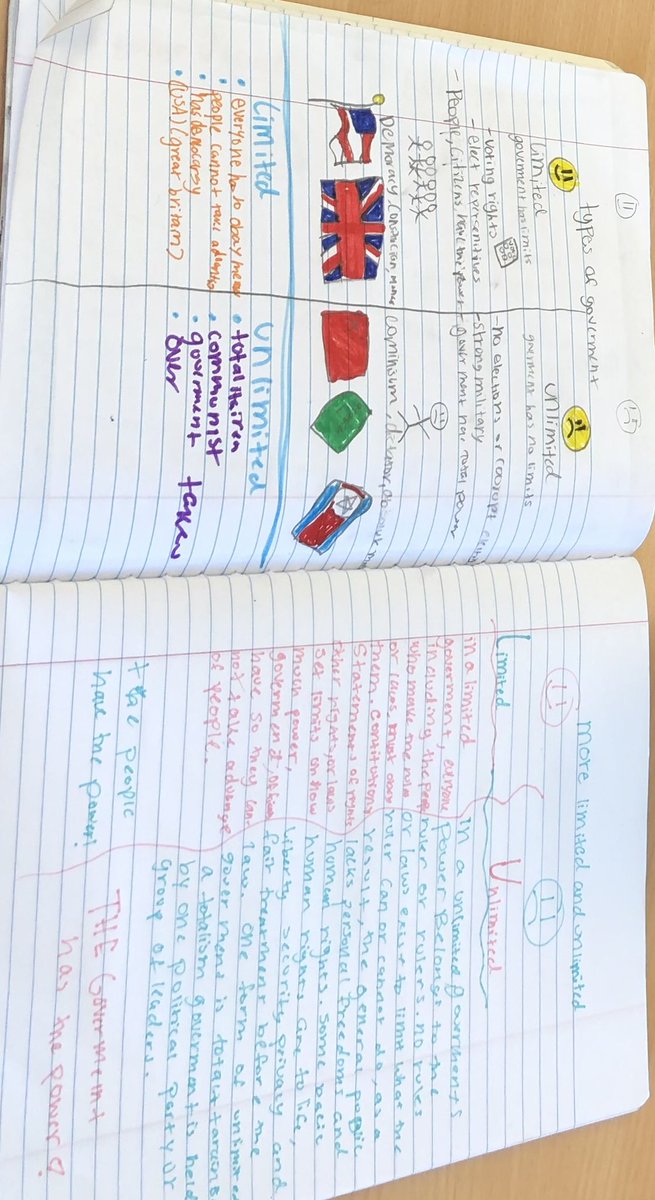 types of government
Limited
government has limits
- voting rights
- elect representitives
- People, citizens have the power
Unlimited
goverment has no limits
- no elections or corropt
- strong military
- Goverment has total power
Democracy,
cominism,
Limited
• everyone has to obey
• people cannot take
• has democracy
• (USA) (great britain)
unlimited
• communist
• government taken
over
more limited and unlimited
Limited
in a limited
goverment, everyone
including the people
who make the rules
or laws, must obey
them. Constitutions
Statements of rights
other rights, or laws
set limits on how
much power,
government,
have so they can
not take advantage
of people.
the people
have the power!
Unlimited
In a unlimited Goverments
Power Belongs to the
ruler or rulers. no rules
or laws exist to limit what the
ruler can or cannot do, as a
result, the general
lacks personal freedom and
human rights. some basic
human rights are to life,
liberty, security, privacy and
fair treatment before the
law. one form of unlimited
government is
a totalism government is held
by one political Party or
group of leaders.
THE Goverment
has the power